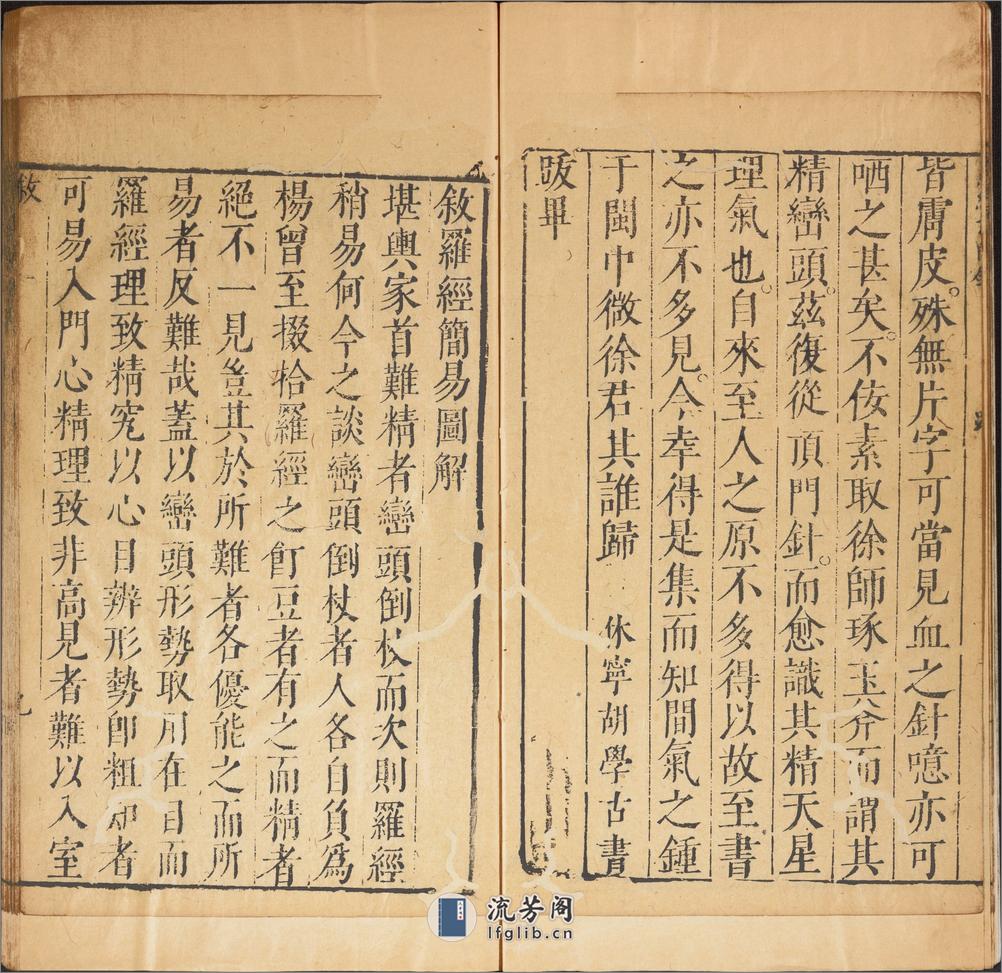 皆膚皮。殊無片字可當見血之針噫亦可
哂之甚矣。不佞素取徐師琢玉斧而謂其
精巒頭。茲復從頂門針。而愈識其精天星
理氣也。自來至人之原不多得以故至書
之亦不多見。今幸得是集而知間氣之鍾
于閩中微徐君其誰歸 休寧胡學古書
跋畢
敘羅經簡易圖解
堪輿家首難精者巒頭倒杖而次則羅經
稍易何今之談巒頭倒杖者人各自負為
楊曾至掇拾羅經之飣豆者有之而精者
絕不一見豈其於所難者各優能之而所
易者反難哉蓋以巒頭形勢取用在目而
羅經理致精究以心目辨形勢卽粗知者
可易入門心精理致非高見者難以入室
敘 一
流芳阁
lfglib.cn